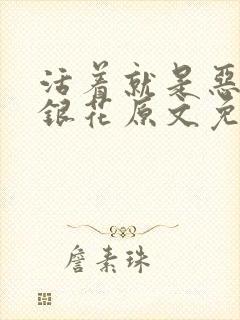 活着就是惡
銀花原文免
詹素珠